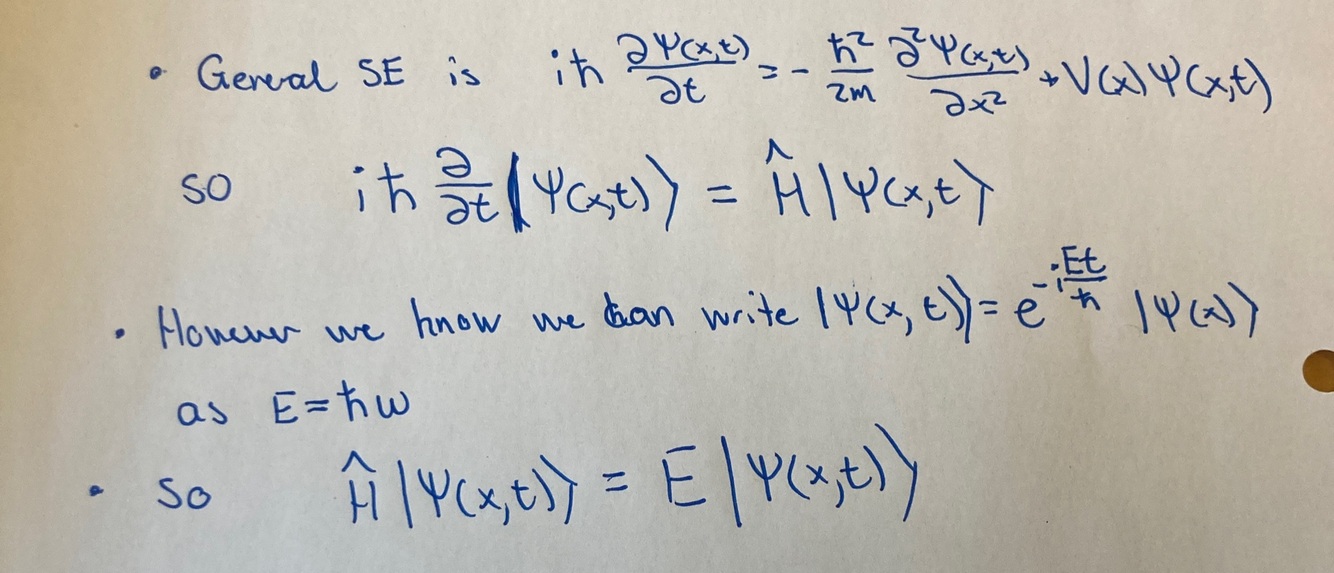 • General SE is iħ ∂Ψ(x,t)/∂t = - ħ²/2m ∂²Ψ(x,t)/∂x² + V(x)Ψ(x,t)
so iħ ∂/∂t |Ψ(x,t)⟩ = Ĥ|Ψ(x,t⟩
• However we know we can write |Ψ(x,t)⟩ = e^{-iEt/ħ} |Ψ(x)⟩
as E=ħω
• So Ĥ|Ψ(x,t)⟩ = E|Ψ(x,t)⟩